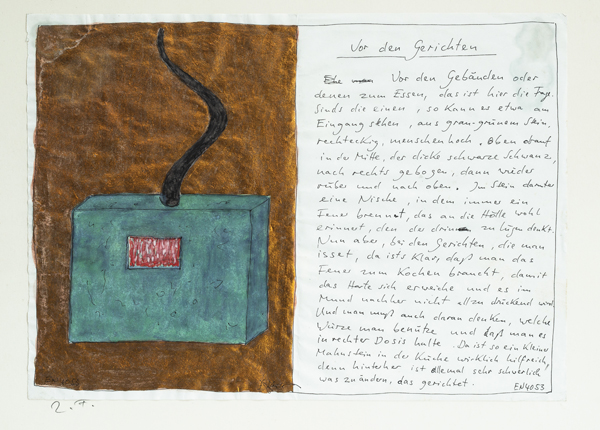 Vor den Gerichten
Vor den Gebäuden oder
denen zum Essen, das ist hier die Frage.
Sinds die einen, so kann es etwa am
Eingang stehen, aus grau-grünem Stein,
rechteckig, menschenhoch. Oben drauf
in der Mitte, der dicke schwarze Schwanz,
nach rechts gebogen, dann wieder
rüber und nach oben. Im Stein darunter
eine Nische, in dem immer ein
Feuer brennt, das an die Hölle wohl
erinnert, den der drinnen zu lügen denkt.
Nun aber, bei den Gerichten, die man
isset, da ists klar, daß man das
Feuer zum Kochen braucht, damit
das Harte sich erweiche und es im
Mund nachher nicht allzu drückend wird.
Und man muß auch daran denken, welche
Würze man benütze und daß man es
in rechter Dosis halte. Da ist so ein kleiner
Mahnstein in der Küche wirklich hilfreich,
denn hinterher ist allemal sehr schwerlich
was zu ändern, das gerichtet.
EN4053